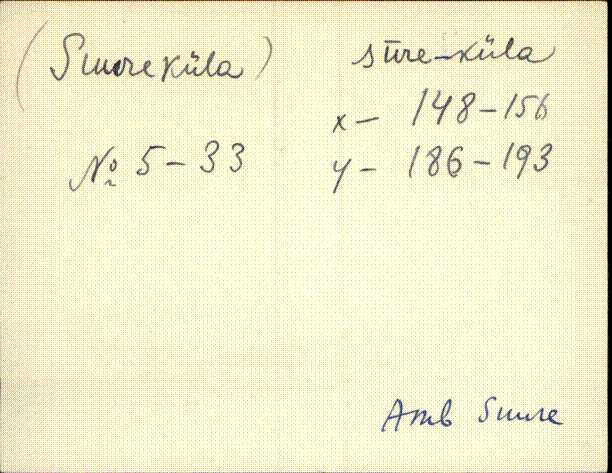 (Suureküla) sūre-küla
x - 148-156
№ 5-33 y - 186-193
Amb Suure